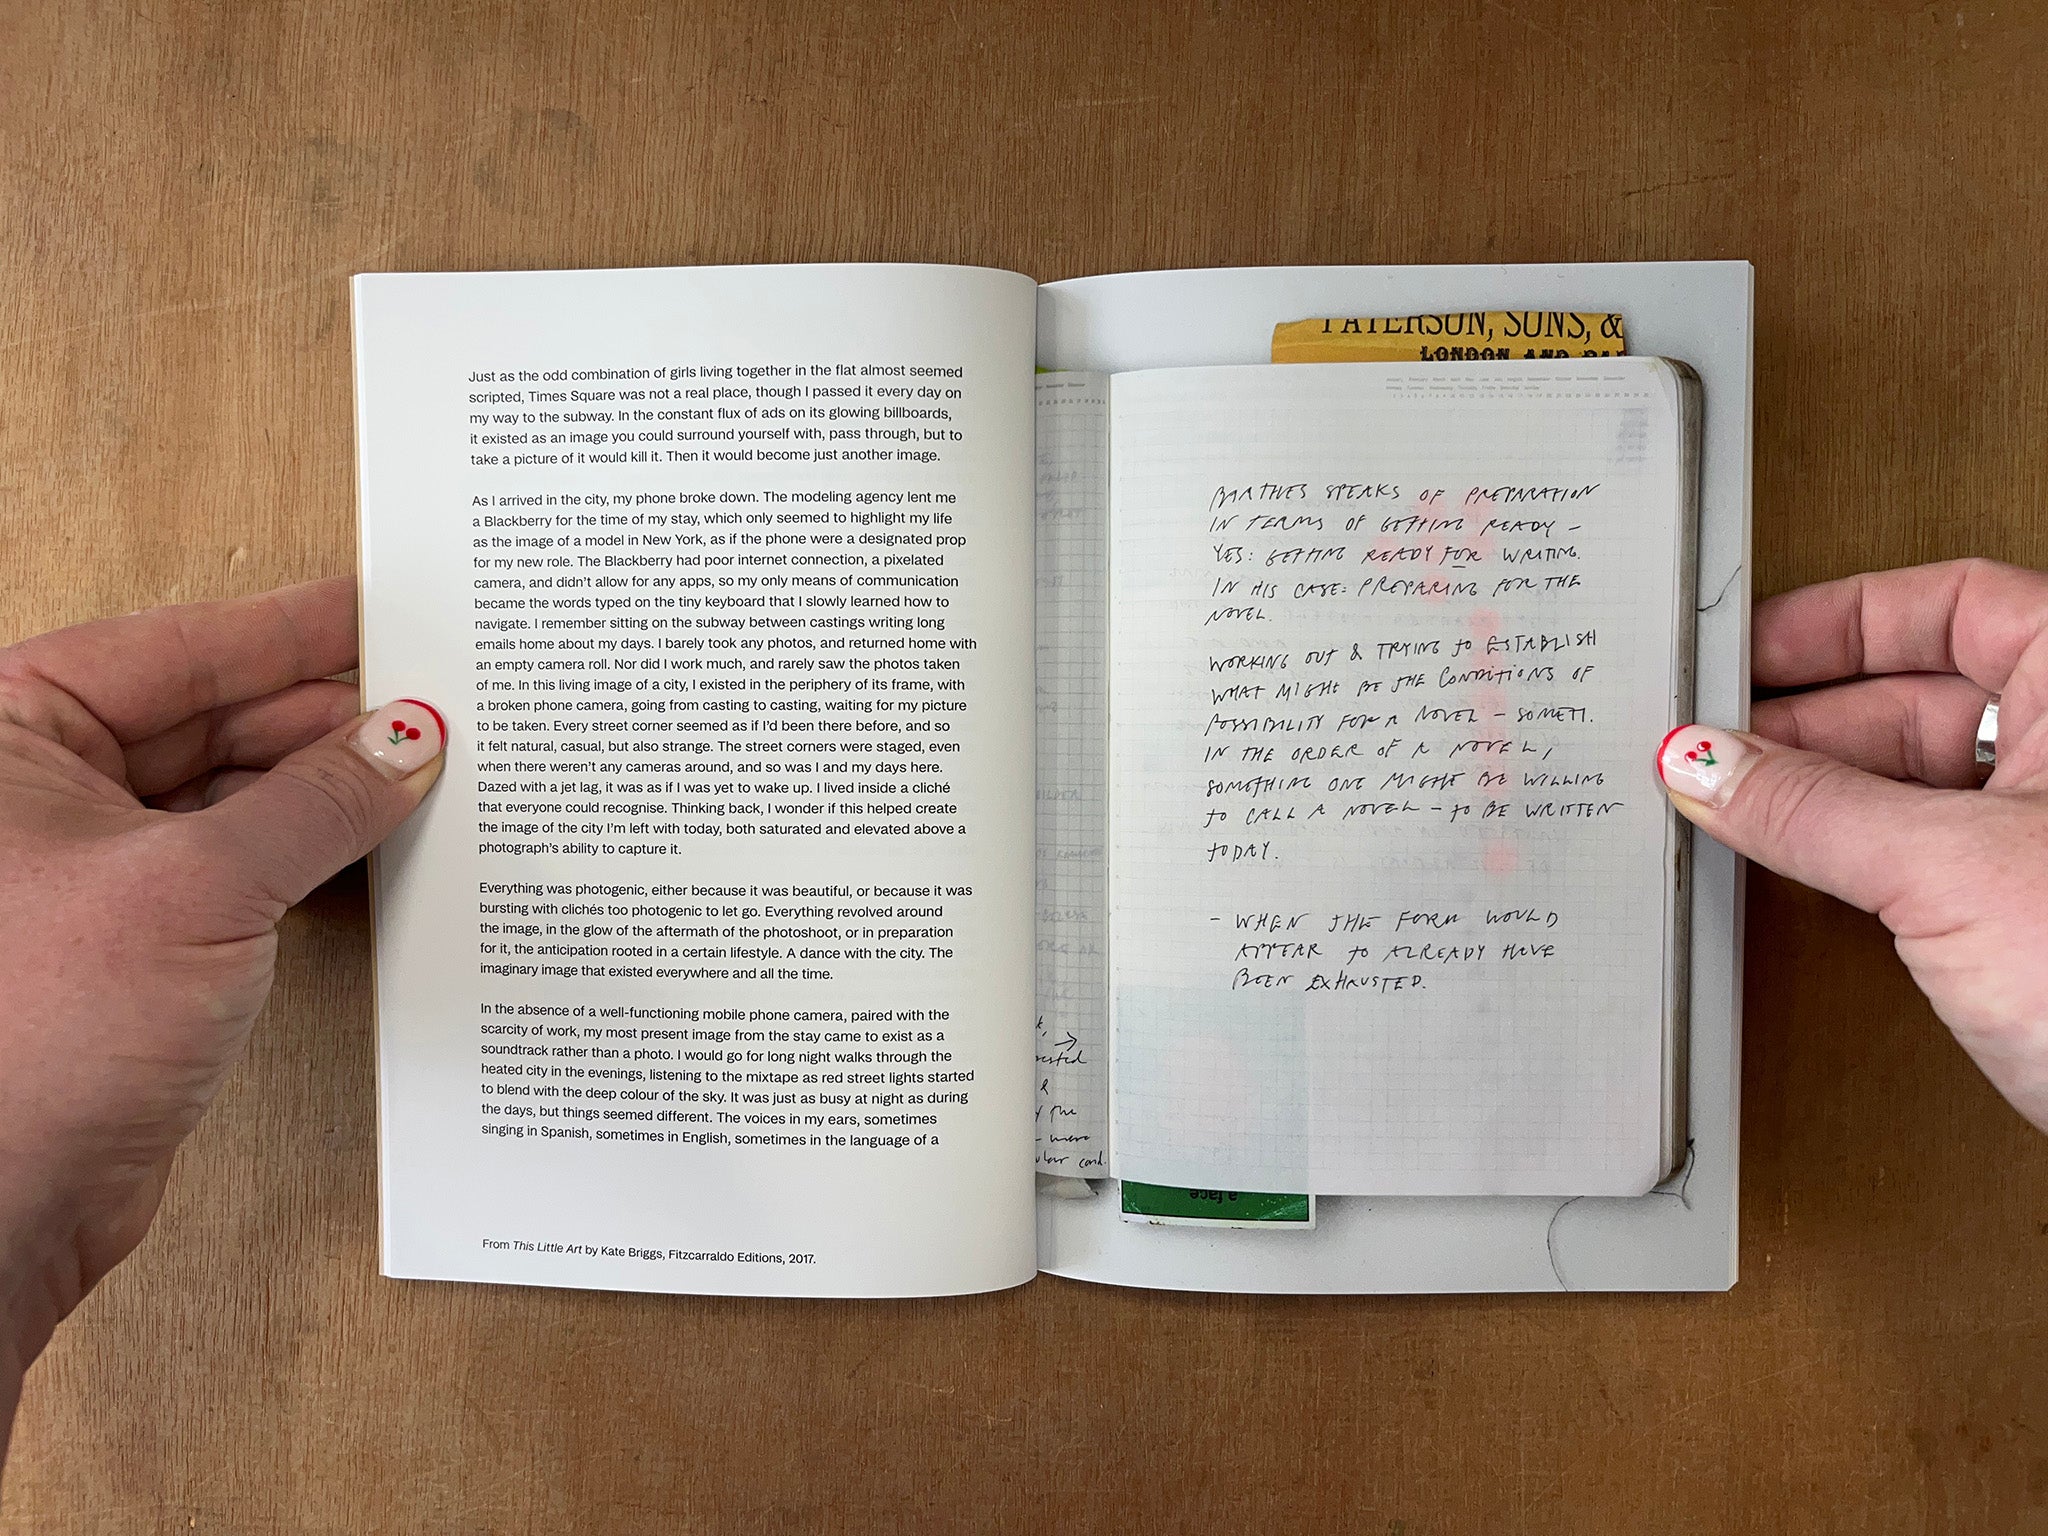 Just as the odd combination of girls living together in the flat almost seemed
scripted, Times Square was not a real place, though I passed it every day on
my way to the subway. In the constant flux of ads on its glowing billboards,
it existed as an image you could surround yourself with, pass through, but to
take a picture of it would kill it. Then it would become just another image.
As I arrived in the city, my phone broke down. The modeling agency lent me
a Blackberry for the time of my stay, which only seemed to highlight my life
as the image of a model in New York, as if the phone were a designated prop
for my new role. The Blackberry had poor internet connection, a pixelated
camera, and didn't allow for any apps, so my only means of communication
became the words typed on the tiny keyboard that I slowly learned how to
navigate. I remember sitting on the subway between castings writing long
emails home about my days. I barely took any photos, and returned home with
an empty camera roll. Nor did I work much, and rarely saw the photos taken
of me. In this living image of a city, I existed in the periphery of its frame, with
a broken phone camera, going from casting to casting, waiting for my picture
to be taken. Every street corner seemed as if I'd been there before, and so
it felt natural, casual, but also strange. The street corners were staged, even
when there weren't any cameras around, and so was I and my days here.
Dazed with a jet lag, it was as if I was yet to wake up. I lived inside a cliché
that everyone could recognise. Thinking back, I wonder if this helped create
the image of the city I'm left with today, both saturated and elevated above a
photograph's ability to capture it.
Everything was photogenic, either because it was beautiful, or because it was
bursting with clichés too photogenic to let go. Everything revolved around
the image, in the glow of the aftermath of the photoshoot, or in preparation
for it, the anticipation rooted in a certain lifestyle. A dance with the city. The
imaginary image that existed everywhere and all the time.
In the absence of a well-functioning mobile phone camera, paired with the
scarcity of work, my most present image from the stay came to exist as a
soundtrack rather than a photo. I would go for long night walks through the
heated city in the evenings, listening to the mixtape as red street lights started
to blend with the deep colour of the sky. It was just as busy at night as during
the days, but things seemed different. The voices in my ears, sometimes
singing in Spanish, sometimes in English, sometimes in the language of a
From This Little Art by Kate Briggs, Fitzcarraldo Editions, 2017.
PATERSON, SONS, &
LONDON AND
BARTHES SPEAKS OF PREPARATION
IN TERMS OF GETTING READY –
YES: GETTING READY FOR WRITING.
IN HIS CASE: PREPARING FOR THE
NOVEL.
WORKING OUT & TRYING TO ESTABLISH
WHAT MIGHT BE THE CONDITIONS OF
POSSIBILITY FOR A NOVEL – SOMETI.
IN THE ORDER OF A NOVEL,
SOMETHING ONE MIGHT BE WILLING
TO CALL A NOVEL – TO BE WRITTEN
TODAY.
– WHEN THE FORM WOULD
APPEAR TO ALREADY HAVE
BEEN EXHAUSTED.
&
the
a face